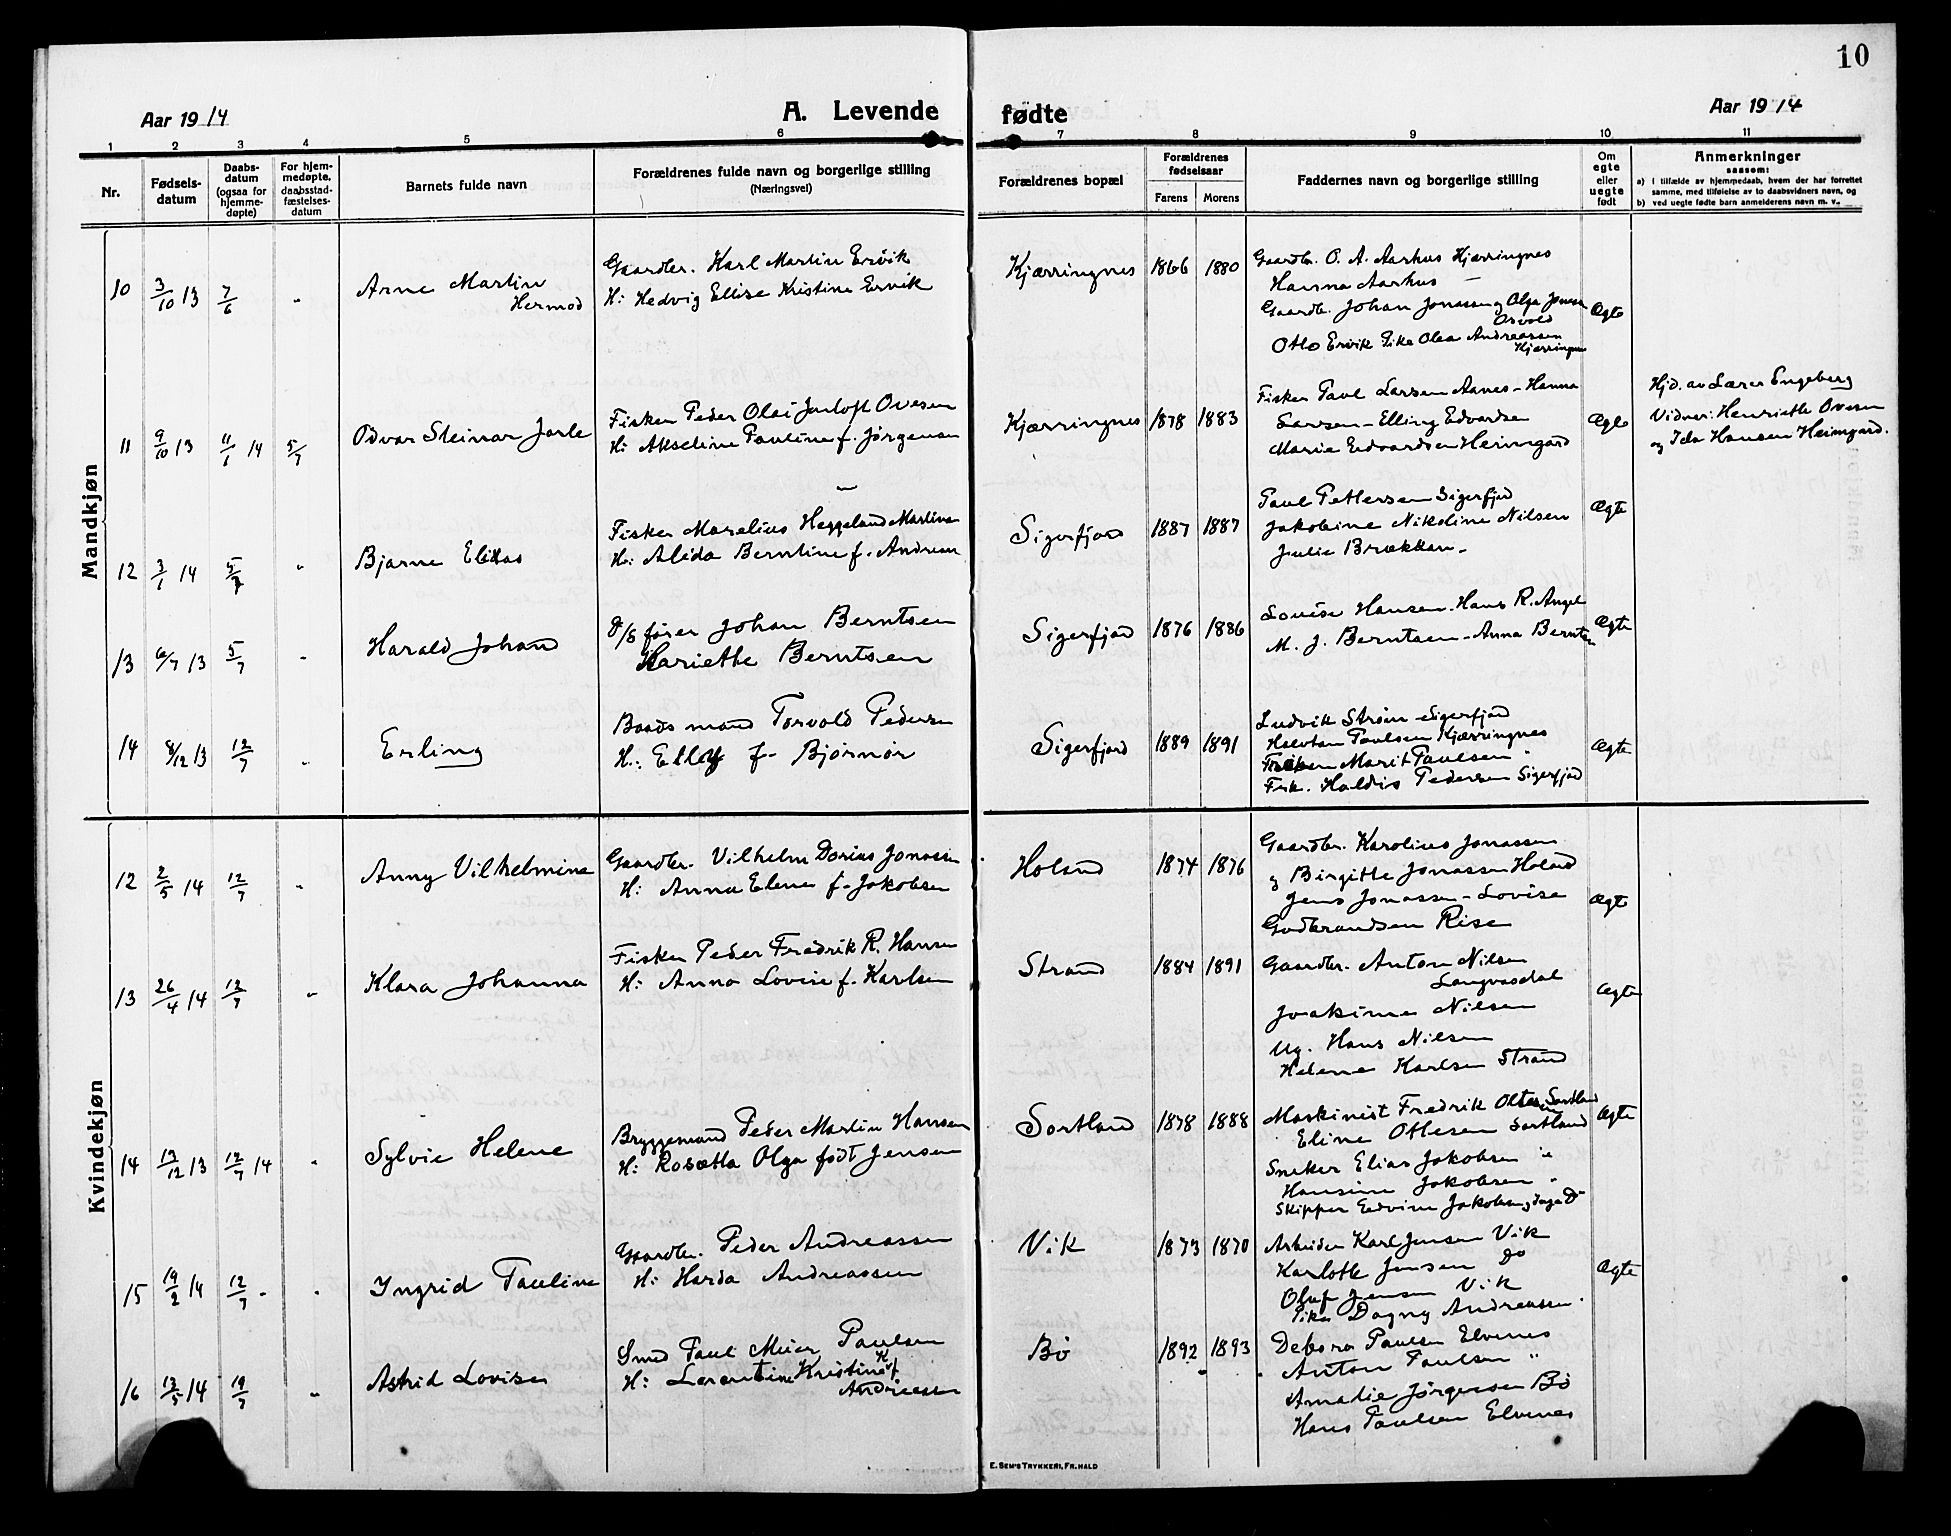 10
Aar 1914
A. Levende fødte
Aar 1914
1 2 3 4 5 6 7 8 9 10 11
Nr.
Fødsels-
datum
Daabs-
datum
(ogsaa for
hjemme-
døpte)
For hjem-
medøpte,
daabsstad-
fæstelses-
datum
Barnets fulde navn
Forældrenes fulde navn og borgerlige stilling
(Næringsvei)
Forældrenes bopæl
Forældrenes
fødselsaar
Farens Morens
Faddernes navn og borgerlige stilling
Om
egte
eller
uegte
født
Anmerkninger
saasom:
a) i tilfælde av hjemmedaab, hvem der har forrettet
samme, med tilføielse av to daabsvidners navn, og
b) ved uegte fødte barn anmelderens navn m. v.
Mandkjøn
10 3/10 13 7/6 "
Arne Martin
Hermod
Gaardbr. Karl Martin Ervik
H: Hedvig Elise Kristine Ervik
Kjærringnes 1866 1880
Gaardbr. O. A. Aarhus Kjærringnes
Hanna Aarhus —
Gaardb. Johan Jonassen og Olga Jonsen
Osvold
Otto Ervik Pike Olea Andreassen
Kjærringnes
Ægte
11 9/10 13 11/1 14 5/7
Odvar Steinar Jarle
Fisker Peder Olai Jentoft Ovesen
H: Akseline Pauline f. Jørgensen
Kjærringnes 1878 1883
Fisker Paul Larsen Aanes - Hanna
Larsen - Elling Edvardsen
Marie Edvardsen Heimgard
Ægte
Hjd. av Lærer Engeberg
Vidner: Henriette Ovesen
og Ida Hansen Heimgard.
12 3/1 14 5/7 "
Bjarne Elias
Fisker Marelius Heggelund Martinsen
H: Alida Berntine f. Andreasen
Sigerfjord 1887 1887
Paul Pettersen Sigerfjord
Jakobine Nikoline Nilsen
Julie Brækkan -
Ægte
13 6/7 13 5/7 "
Harald Johan
D/S fører Johan Berntsen
Hariette Berntsen
Sigerfjord 1876 1886
Louise Hansen. Hans R. Angel
M. J. Berntsen - Anna Berntsen
Ægte
14 8/12 13 12/7 "
Erling
Baadsmand Torvald Pedersen
H: Elley f. Bjørnør
Sigerfjord 1889 1891
Ludvik Strøm Sigerfjord
Halvdan Paulsen Kjærringnes
Frøken Marit Paulsen "
Frk. Haldis Pedersen Sigerfjord
Ægte
Kvindekjøn
12 2/5 14 12/7 "
Anny Vilhelmine
Gaardbr. Vilhelm Dorius Jonassen
H: Anna Elene f. Jakobsen
Holand 1874 1876
Gaardbr. Karolius Jonassen
og Birgitte Jonassen Holand
Jens Jonassen - Lovise
Gudbrandsen Rise
Ægte
13 26/4 14 12/7 "
Klara Johanna
Fisker Peder Fredrik R. Hansen
H: Anna Lovise f. Karlsen
Strand 1884 1891
Gaardbr. Anton Nilsen
Langvasdal
Joakime Nilsen
Ug. Hans Nilsen
Helene Karlsen Strand
Ægte
14 13/12 13 12/7 14 "
Sylvie Helene
Bryggemand Peder Martin Hansen
H: Rosetta Olga født Jensen
Sortland 1878 1888
Maskinist Fredrik Ottesen Sortland
Eline Ottesen Sortland
Sneker Elias Jakobsen "
Hansine Jakobsen "
Skipper Edvin Jakobsen
Ægte
15 19/2 14 12/7 "
Ingrid Pauline
Gaardbr. Peder Andreassen
H: Harda Andreassen
Vik 1873 1870
Arbeider Karl Jensen Vik
Karlotte Jensen Do
Oluf Jensen Vik
Pike Dagny Andreassen
Ægte
16 13/5 14 19/7 "
Astrid Lovise
Smed Paul Meier Paulsen
H: Lorentine Kristine K. f.
Andreassen
Bø 1892 1893
Debora Paulsen Elvenes
Anton Paulsen "
Amalie Jørgensen Bø
Hans Paulsen Elvenes
E. SEM'S TRYKKERI, FR.HALD